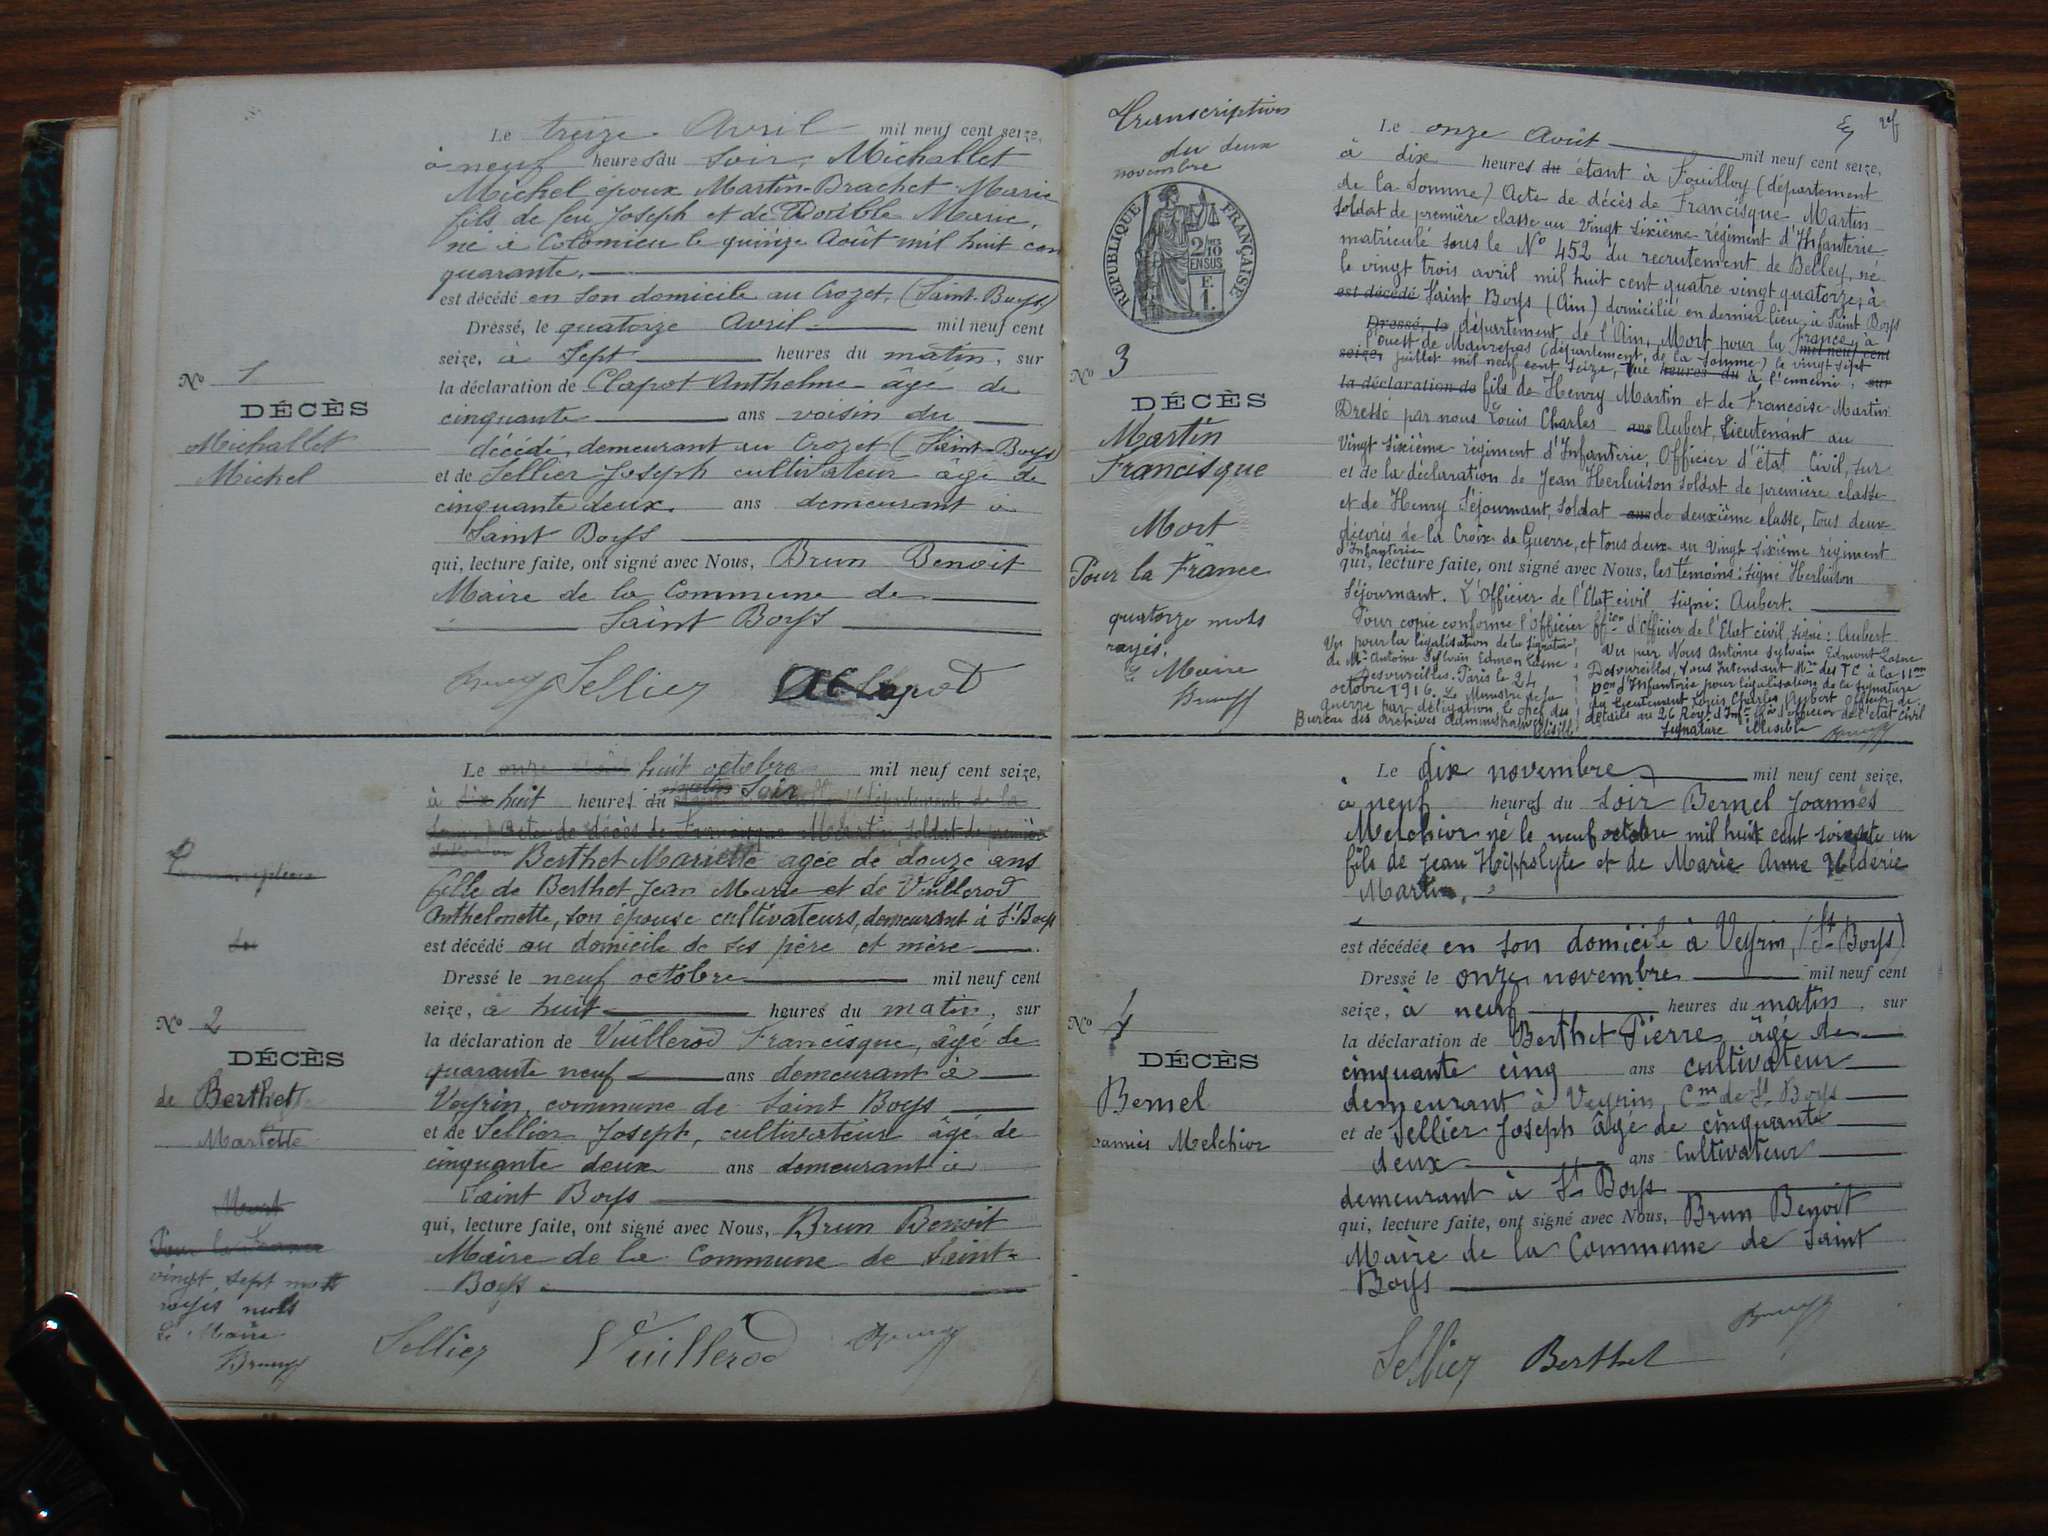 Le treize Avril mil neuf cent seize,
à neuf heures du soir, Michallet
Michel époux Martin-Brachet Marie
fils de feu Joseph et de Double Marie,
né à Colomieu le quinze Août mil huit cen
quarante,
est décédé en son domicile au Crozet, (Saint-Boys)
Dressé, le quatorze Avril mil neuf cent
seize, à Sept heures du matin, sur
la déclaration de Clapot Anthelme âgé de
cinquante ans voisin du
décédé, demeurant au Crozet (Saint-Boys)
et de Sellier Joseph cultivateur âgé de
cinquante deux. ans demeurant à
Saint Boys
qui, lecture faite, ont signé avec Nous, Brun Benoit
Maire de la Commune de
Saint Boys
Sellier
No 1
DÉCÈS
Michallet
Michel
Le onze huit octobre mil neuf cent seize,
à dix huit heures du matin Soir département de la
Acte de décès de Francisque Martin, soldat de première
Berthet Mariette agée de douze ans
fille de Berthet Jean Marie et de Vuillerod
Anthelmette, son épouse cultivateurs, demeurant à St Boys
est décédé au domicile de ses père et mère
Dressé le neuf octobre mil neuf cent
seize, à huit heures du matin, sur
la déclaration de Vuillerod Francisque, âgé de
quarante neuf ans demeurant à
Veyrin, commune de Saint Boys
et de Sellier Joseph, cultivateur âgé de
cinquante deux ans demeurant à
Saint Boys
qui, lecture faite, ont signé avec Nous, Brun Benoit
Maire de la Commune de Saint-
Boys
Sellier Vuillerod
No 2
DÉCÈS
de Berthet
Mariette
Mort
Pour la France
vingt sept mots
rayés nuls
Le Maire
Transcription
du deux
novembre
RÉPUBLIQUE FRANÇAISE
2/10
EN SUS
E.
1.
No 3
DÉCÈS
Martin
Francisque
Mort
Pour la France
quatorze mots
rayés.
Le Maire
Le onze Août mil neuf cent seize,
à dix heures du étant à Fouilloy (département
de la Somme) Acte de décès de Francisque Martin
soldat de première classe au vingt sixième régiment d'Infanterie
matriculé sous le No 452 du recrutement de Belley, né
le vingt trois avril mil huit cent quatre vingt quatorze, à
est décédé Saint Boys (Ain) domicilié en dernier lieu à Saint Boys
Dressé, le département de l'Ain, Mort pour la France, à
l'ouest de Maurepas (département de la Somme) le vingt sept mil neuf cent
seize, juillet mil neuf cent seize, tué heures du à l'ennemi, sur
la déclaration de fils de Henry Martin et de Françoise Martin
Dressé par nous Louis Charles ans Aubert, Lieutenant au
vingt sixième régiment d'Infanterie, Officier d'état Civil, sur
et de la déclaration de Jean Herluison soldat de première classe
et de Henry Séjournant, soldat ans de deuxième classe, tous deux
décorés de la Croix de Guerre, et tous deux au vingt sixième régiment
d'Infanterie
qui, lecture faite, ont signé avec Nous, les témoins: signé Herluison
Séjournant. L'Officier de l'Etat civil signé: Aubert.
Pour copie conforme l'Officier d'Officier de l'Etat civil, signé: Aubert
Vu pour la légalisation de la signature
de Mr Antoine Sylvain Edmond
Desvureilles. Paris le 24
octobre 1916. Le Ministre de la
Guerre par délégation, le chef du
Bureau des archives administratives
Vu par Nous Antoine Sylvain Edmond
Desvureilles, Sous Intendant Mre des TC à la 11e
Don d'Infanterie pour légalisation de la signature
du Lieutenant Louis Charles Aubert Officier de
détails au 26 Régt d'Infie d'officier de l'état civil
signature illisible
No 4
DÉCÈS
Bernel
Joannès Melchior
Le dix novembre mil neuf cent seize,
à neuf heures du soir Bernel Joannès
Melchior né le neuf octobre mil huit cent soixante un
fils de Jean Hippolyte et de Marie Anne
Martin,
est décédée en son domicile à Veyrin, (St Boys)
Dressé le onze novembre mil neuf cent
seize, à neuf heures du matin, sur
la déclaration de Berthet Pierre âgé de
cinquante cinq ans cultivateur
demeurant à Veyrin, Cne de St Boys
et de Sellier Joseph âgé de cinquante
deux ans cultivateur
demeurant à St Boys
qui, lecture faite, ont signé avec Nous, Brun Benoit
Maire de la Commune de Saint
Boys
Sellier Berthet